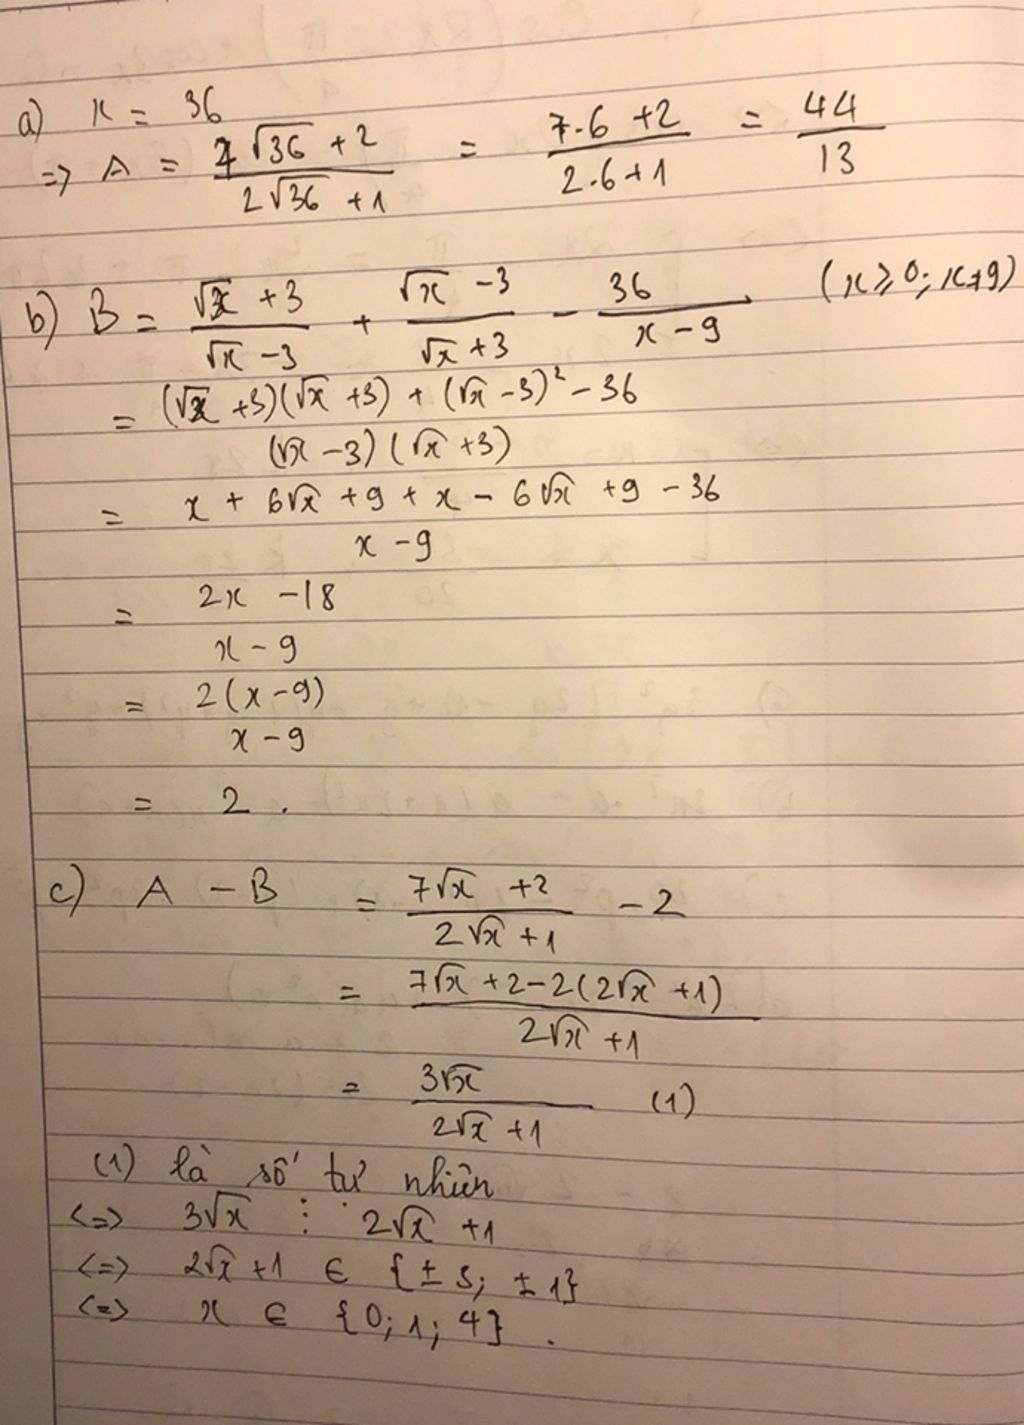 a) x = 36
=> A = (7√36 + 2)/(2√36 + 1) = (7.6 + 2)/(2.6 + 1) = 44/13
b) B = (√x + 3)/(√x - 3) + (√x - 3)/(√x + 3) - 36/(x - 9) (x ≥ 0; x ≠ 9)
= ((√x + 3)(√x + 3) + (√x - 3)² - 36)/((√x - 3)(√x + 3))
= (x + 6√x + 9 + x - 6√x + 9 - 36)/(x - 9)
= (2x - 18)/(x - 9)
= 2(x - 9)/(x - 9)
= 2 .
c) A - B = (7√x + 2)/(2√x + 1) - 2
= (7√x + 2 - 2(2√x + 1))/(2√x + 1)
= 3√x/(2√x + 1) (1)
(1) là số tự nhiên
<=> 3√x ⋮ 2√x + 1
<=> 2√x + 1 ∈ {± 3; ± 1}
<=> x ∈ {0; 1; 4} .